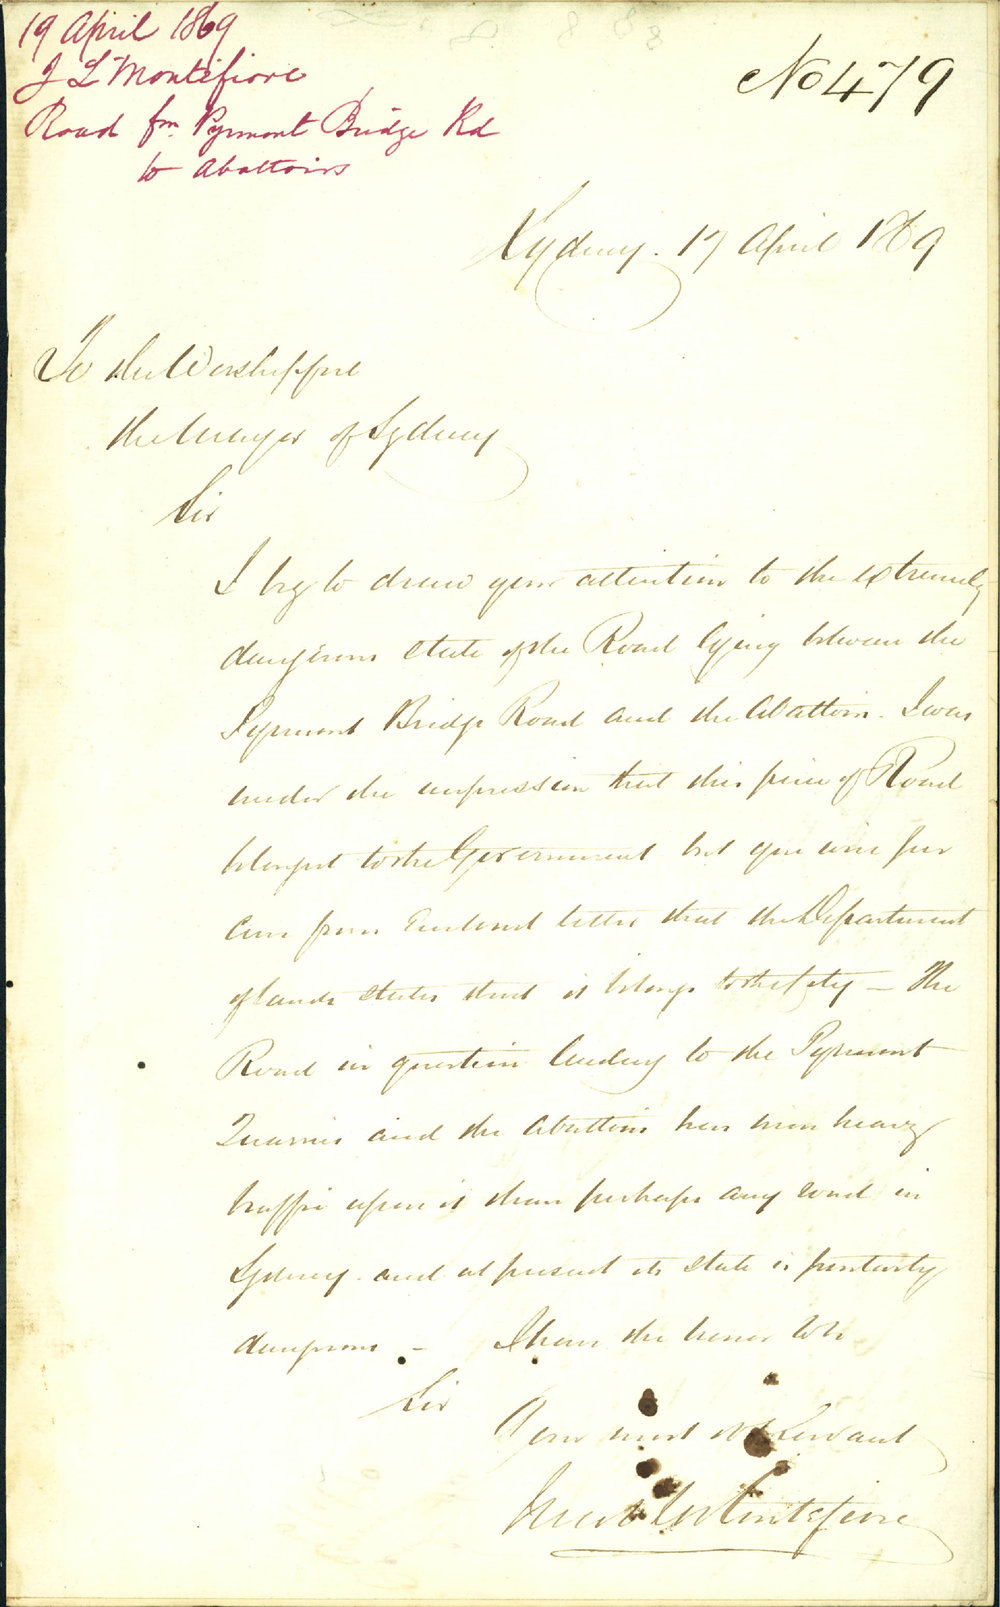 19 April 1869
J L Montefiore
Road fm Pyrmont Bridge Rd
to Abattoirs
No 479
Sydney. 17 April 1869
To the Worshipful
the Mayor of Sydney
Sir
I beg to draw your attention to the extremely
dangerous state of the Road lying between the
Pyrmont Bridge Road and the Abattoirs. I was
under the impression that this piece of Road
belonged to the Government but you will per
ceive from enclosed letter that the Department
of Lands states that it belongs to the City — The
Road in question leading to the Pyrmont
Quarries and the Abattoirs has more heavy
traffic upon it than perhaps any road in
Sydney and at present its state is positively
dangerous — I have the honor to be
Sir
Your most obt Servant
Jacob L Montefiore